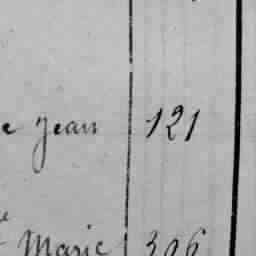 e Jean 121
Marie 306